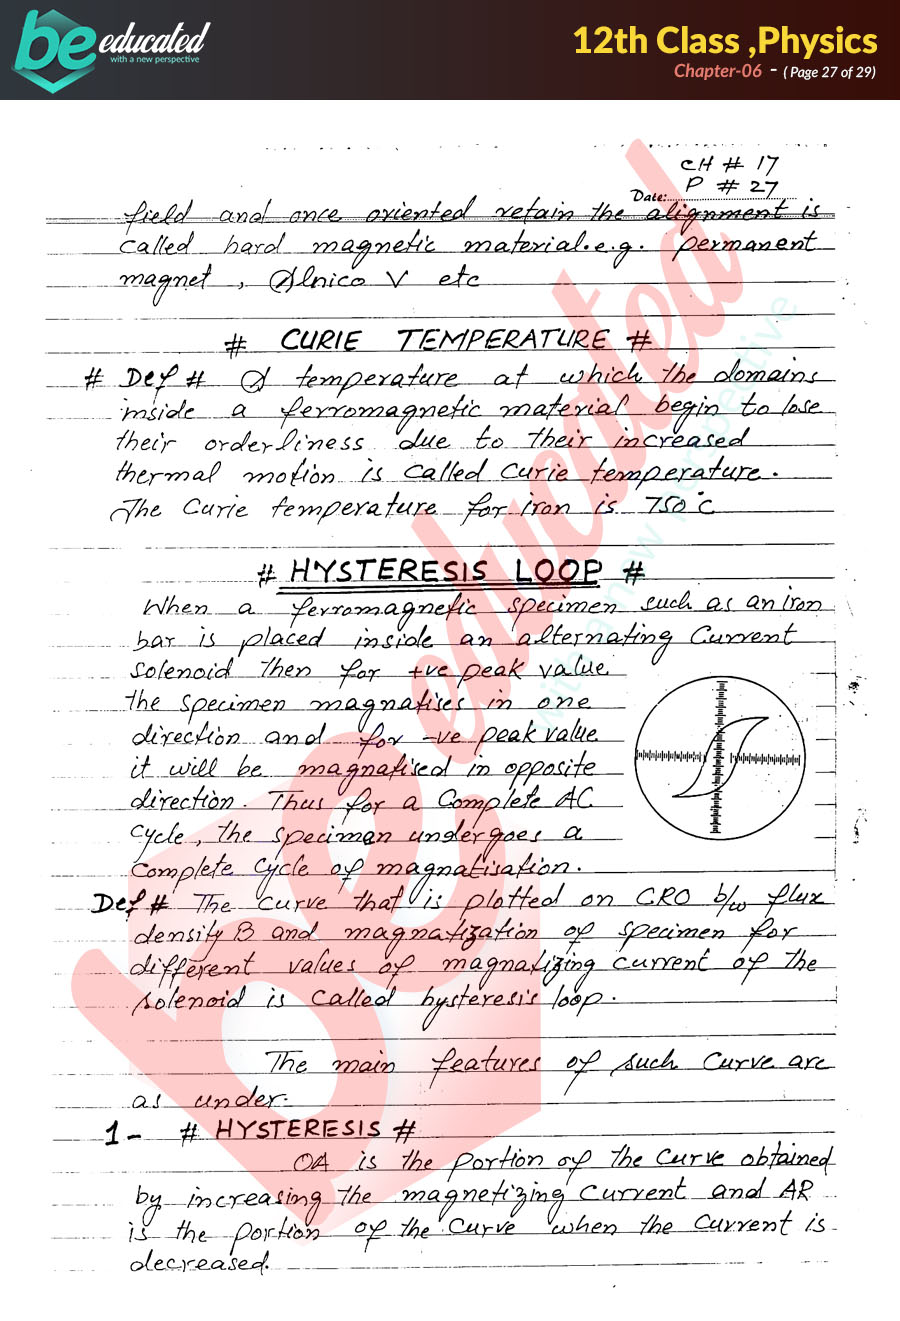 be educated
with a new perspective
12th Class ,Physics
Chapter-06 - ( Page 27 of 29)
CH # 17
P # 27
Date:
field and once oriented retain the alignment is
called hard magnetic material. e.g. permanent
magnet , Alnico V etc
# CURIE TEMPERATURE #
# Def # A temperature at which the domains
inside a ferromagnetic material begin to lose
their orderliness due to their increased
thermal motion is called Curie temperature.
The Curie temperature for iron is 750°C
# HYSTERESIS LOOP #
When a ferromagnetic specimen such as an iron
bar is placed inside an alternating Current
solenoid then for +ve peak value
the specimen magnatises in one
direction and for -ve peak value
it will be magnatised in opposite
direction. Thus for a Complete AC
cycle, the speciman undergoes a
complete cycle of magnatisation.
Def # The curve that is plotted on CRO b/w flux
density B and magnatization of specimen for
different values of magnatizing current of the
solenoid is called hysteresis loop.
The main features of such Curve are
as under:-
1- # HYSTERESIS #
OA is the portion of the curve obtained
by increasing the magnetizing Current and AR
is the portion of the Curve when the Current is
decreased.
be educated
with a new perspective